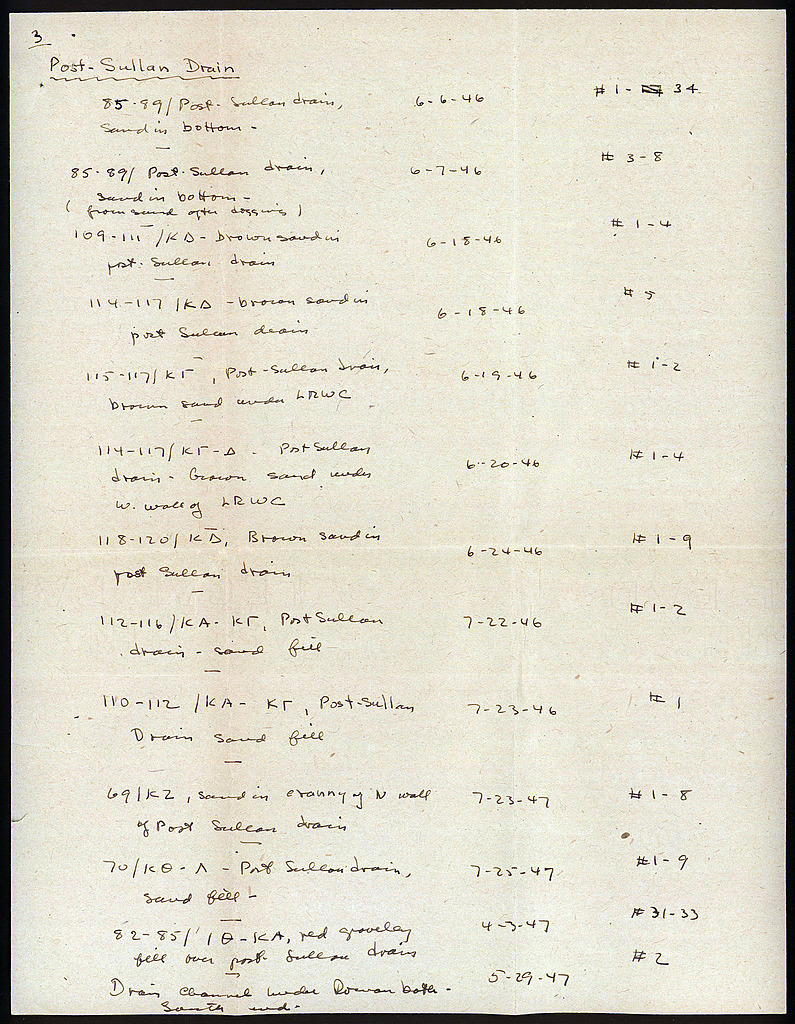 3
Post-Sullan Drain
85-89/ Post-Sullan drain, 6-6-46 #1- 34
sand in bottom -
85-89/ Post-Sullan drain, 6-7-46 #3-8
sand in bottom -
(from sand after digging)
109-111/KΔ - brown sand in 6-18-46 #1-4
post-Sullan drain
114-117/KΔ - brown sand in 6-18-46 #5
post Sullan drain
115-117/KΓ, Post-Sullan drain, 6-19-46 #1-2
brown sand under LRWC
114-117/KΓ-Δ. Post Sullan 6-20-46 #1-4
drain - brown sand under
W. wall of LRWC
118-120/KΔ, Brown sand in 6-24-46 #1-9
post Sullan drain
112-116/KA-KΓ, Post Sullan 7-22-46 #1-2
drain - sand fill
110-112/KA-KΓ, Post-Sullan 7-23-46 #1
Drain sand fill
69/KZ, sand in cranny of N wall 7-23-47 #1-8
of Post Sullan drain
70/KΘ-Λ - Post Sullan drain, 7-25-47 #1-9
sand fill -
82-85/ΙΘ-KA, red gravelley 4-3-47 #31-33
fill over post-Sullan drain
Drain channel under Roman bath - 5-29-47 #2
South end.